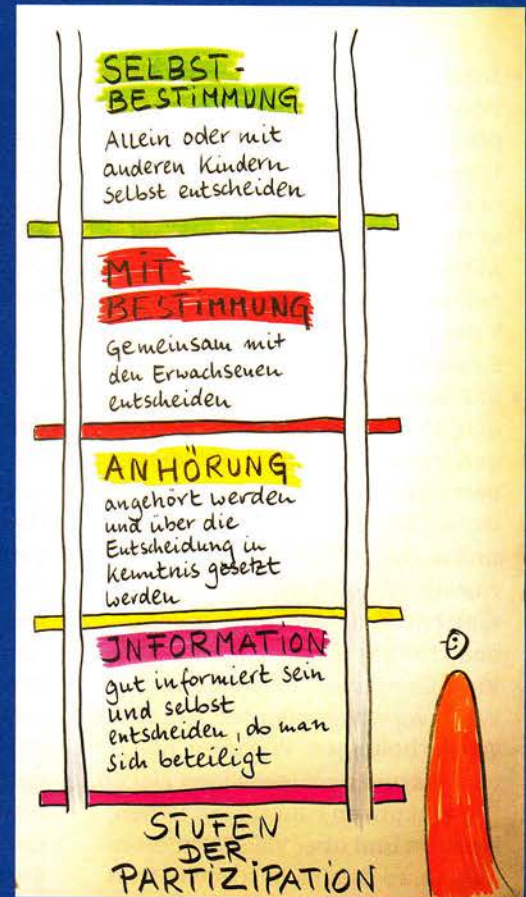 SELBST-
BESTIMMUNG
Allein oder mit
anderen Kindern
selbst entscheiden
MIT-
BESTIMMUNG
Gemeinsam mit
den Erwachsenen
entscheiden
ANHÖRUNG
angehört werden
und über die
Entscheidung in
Kenntnis gesetzt
werden
INFORMATION
gut informiert sein
und selbst
entscheiden, ob man
sich beteiligt
STUFEN
DER
PARTIZIPATION